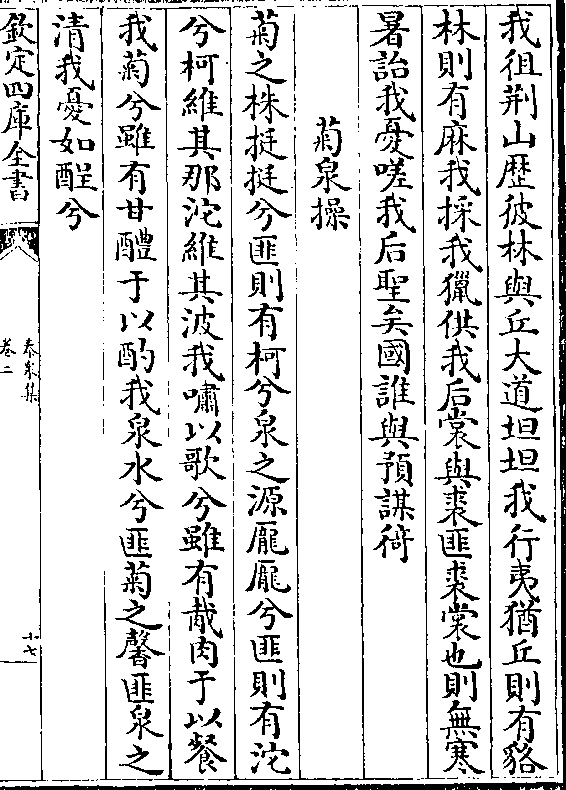 我徂荆山歴彼林與丘大道坦坦我行夷猶丘則有貉
林則有麻我採我獵供我后裳與裘匪裘裳也則無寒
暑詒我憂嗟我后聖矣國誰與預謀衕
菊泉操
菊之株挺挺兮匪則有柯兮泉之源龎龎兮匪則有沱
兮柯維其那沱維其波我嘯以歌兮雖有胾肉于以餐
我菊兮雖有甘醴于以酌我泉水兮匪菊之馨匪泉之
清我憂如酲兮
欽定四庫全書
泰泉集
卷二
十七